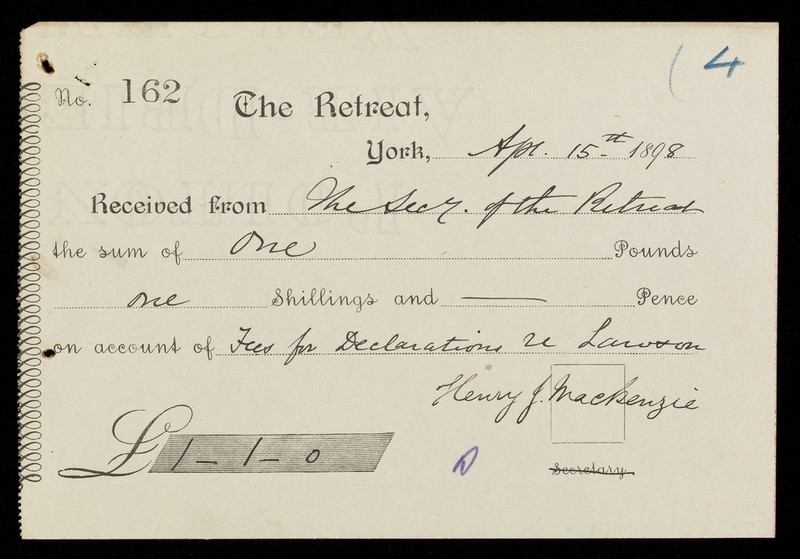 ( 4
No. 162
The Retreat,
York, Apr. 15th 1898
Received from The Secy. of the Retreat
the sum of One Pounds
one Shillings and — Pence
on account of Fees for Declarations re Lawson
Henry J. Mackenzie
£ 1 – 1 – 0
Secretary